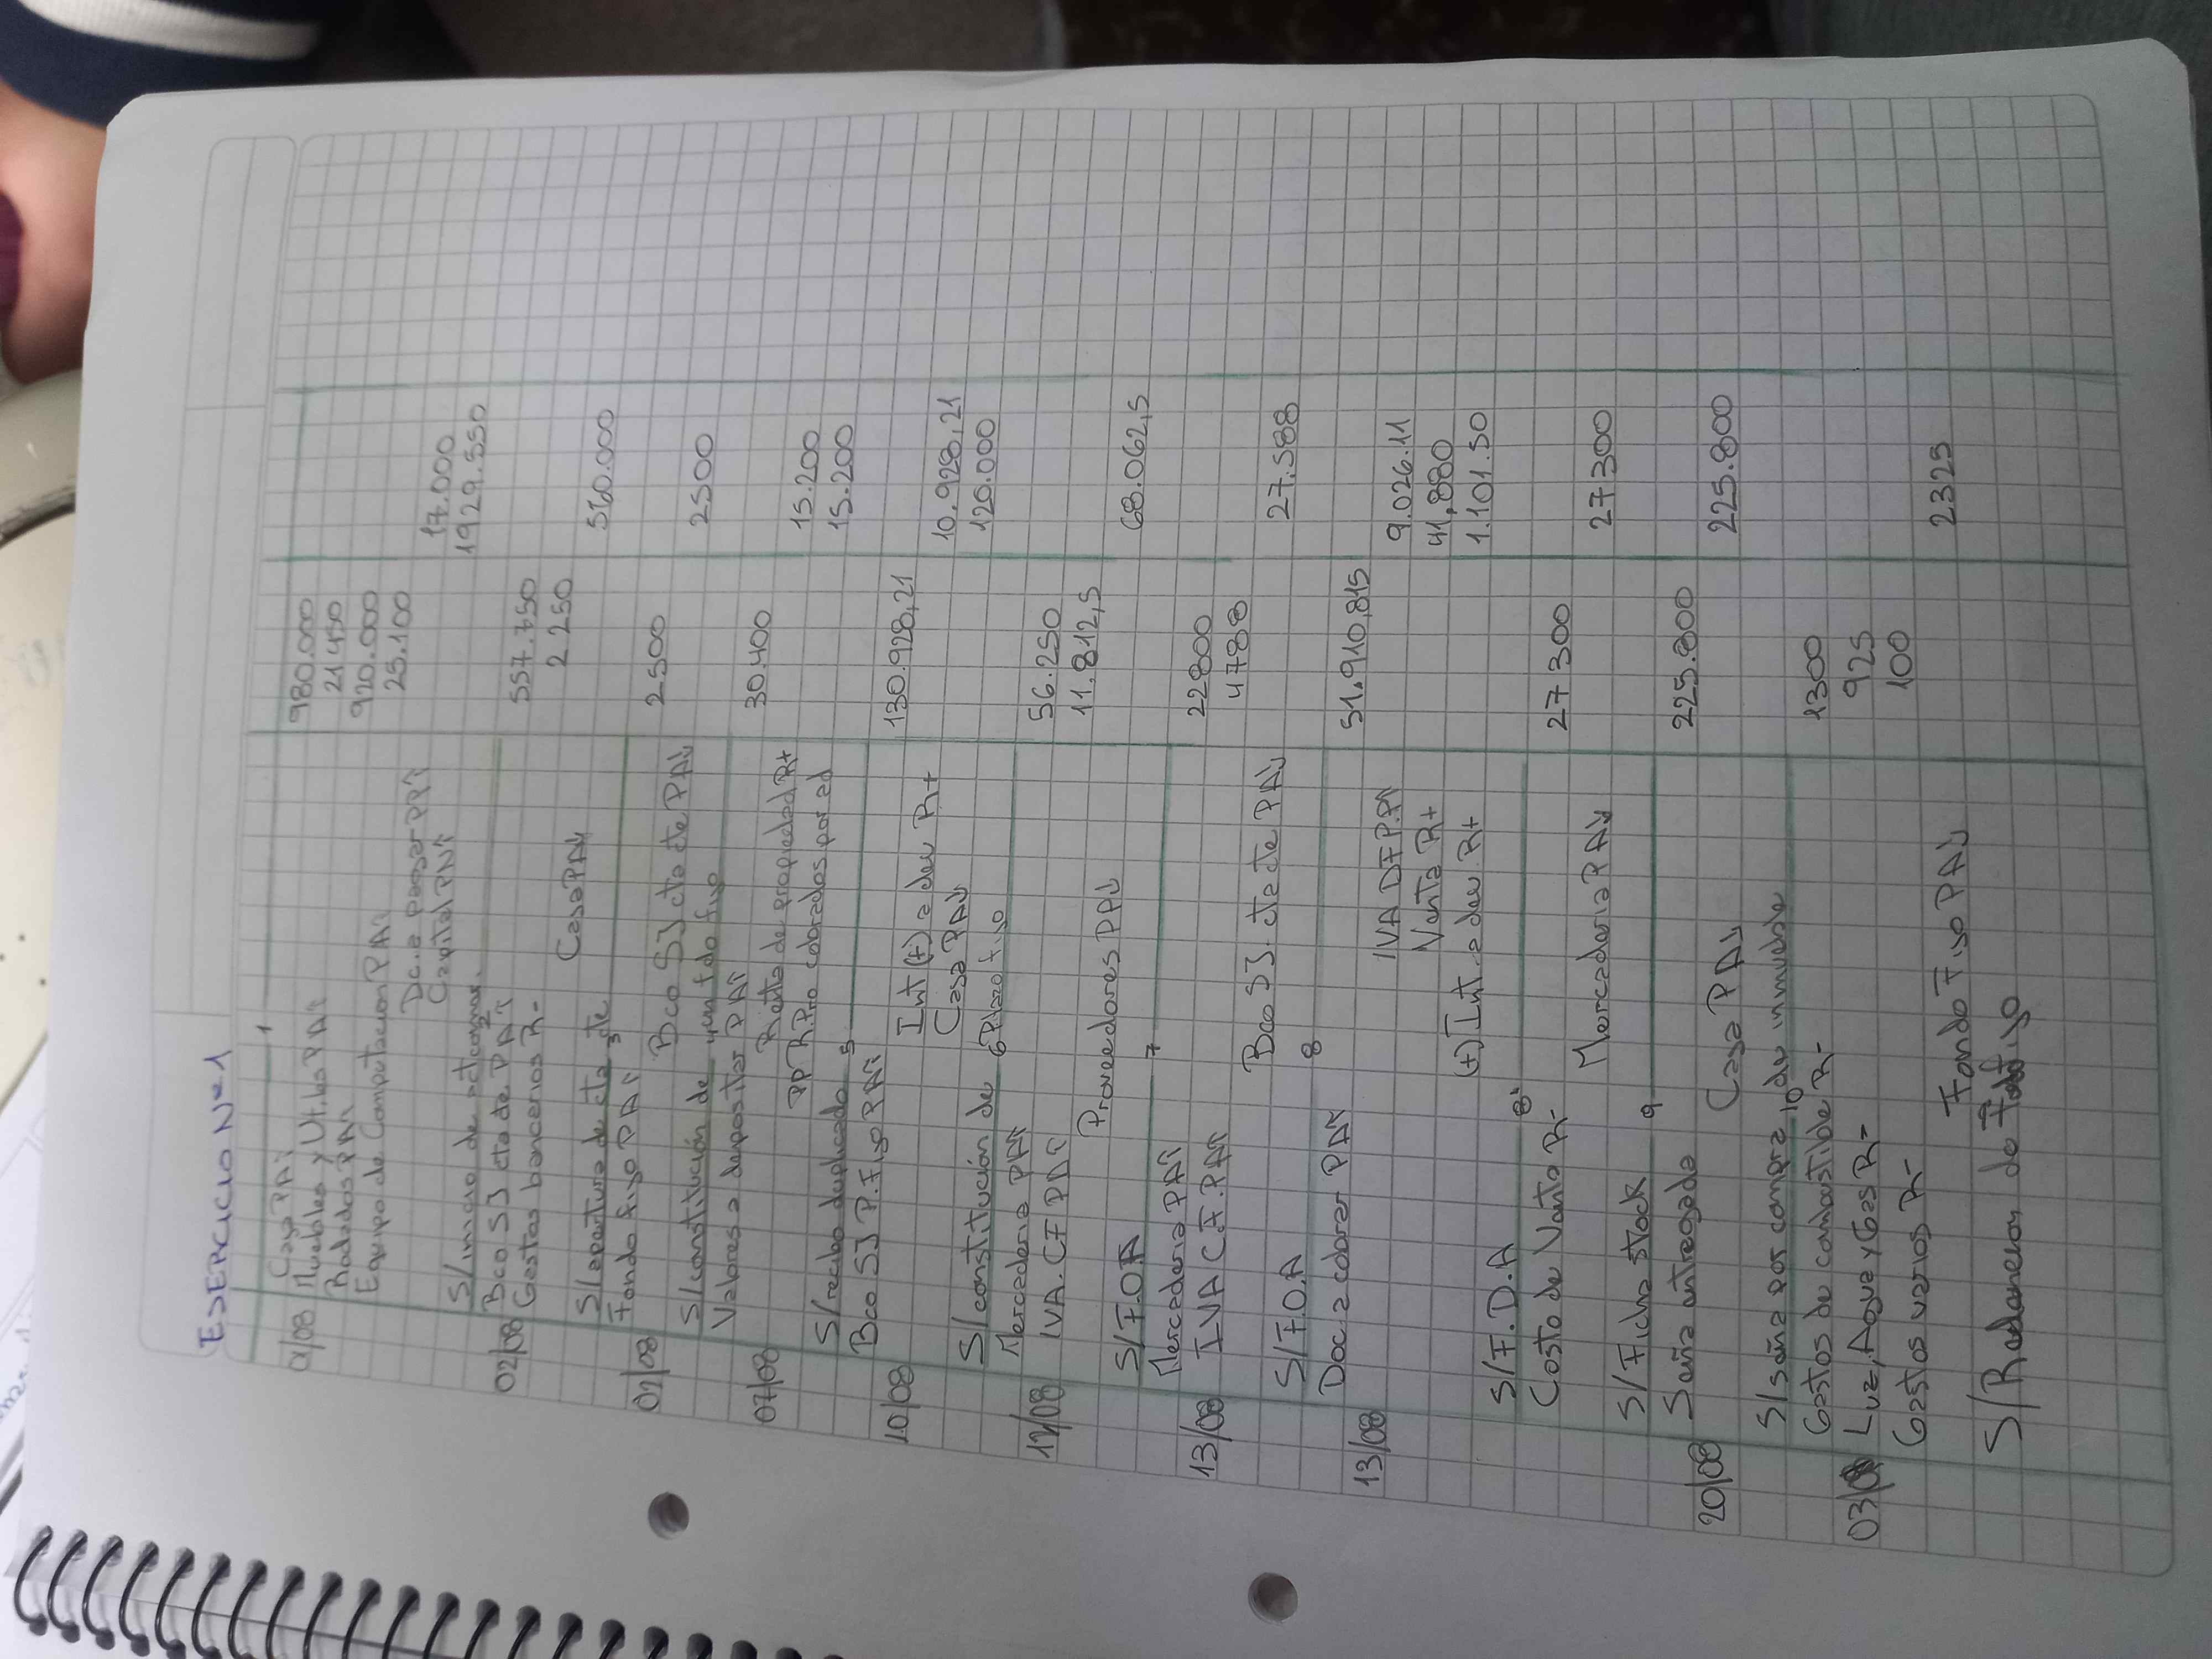 EJERCICIO N° 1
1
01/08 Caja PA↑ 980.000
Muebles y Utiles PA↑ 21 450
Rodados PA↑ 920.000
Equipo de Computacion PA↑ 25.100
Dc. a pagar PP↑ 17.000
Capital PN↑ 1929.550
S/ inicio de act comer.
2
02/08 Bco SJ cta cte PA↑ 557.750
Gastos bancarios R- 2 250
Caja PA↓ 560.000
S/ apertura de cta cte
3
02/08 Fondo fijo PA↑ 2500
Bco SJ cta cte PA↓ 2500
S/ constitución de un fdo fijo
4
07/08 Valores a depositar PA↑ 30.400
Renta de propiedad R+ 15.200
PP R.Pro cobrados por ad 15.200
S/ recibo duplicado
5
10/08 Bco SJ P.Fijo PA↑ 130.928,21
Int (+) a dev R+ 10.928,21
Caja PA↓ 120.000
S/ constitución de Plazo fijo
6
12/08 Mercaderia PA↑ 56.250
IVA. CF PA↑ 11.812,5
Proveedores PA↓ 68.062,5
S/ F.O.A
7
13/08 Mercaderia PA↑ 22800
IVA C.F. PA↑ 4788
Bco SJ. cta cte PA↓ 27.588
S/ F.O.A
8
13/08 Doc. a cobrar PA↑ 51.910,815
IVA DF P.P↑ 9.026.11
Venta R+ 41,880
(+) Int. a dev R+ 1.101.50
S/ F.D.A
8'
Costo de Venta R- 27 300
Mercaderia PA↓ 27300
S/ Ficha Stock
9
20/08 Seña entregada 225.800
Caja PA↓ 225.800
S/ seña por compra de inmueble
10
Gastos de combustible R- 1300
03/08 Luz, Agua y Gas R- 925
Gastos varios R- 100
Fondo Fijo PA↓ 2325
S/ Redancion de fijo